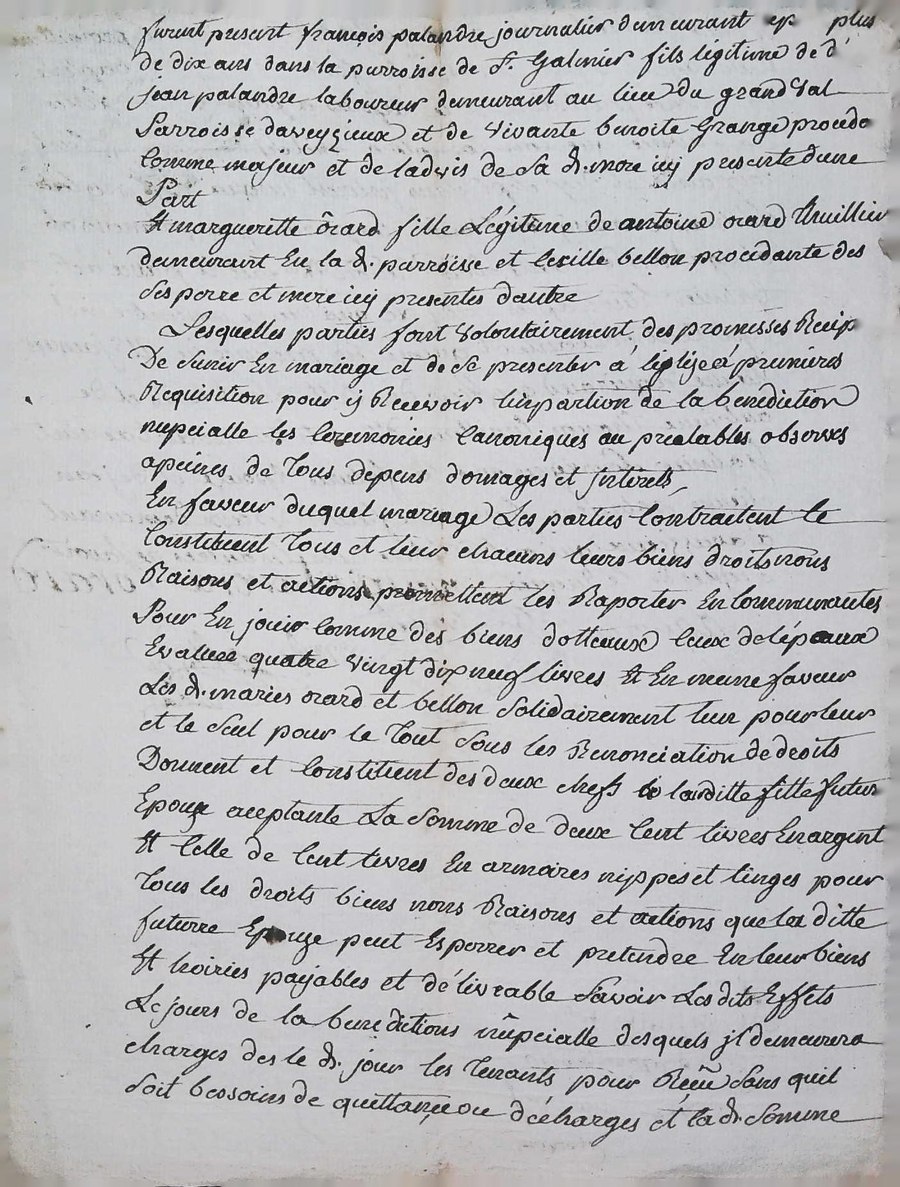 furent present françois palandre journalier demeurant ep plus
de dix ans dans la parroisse de St. Galmier fils légitime de d'
jean palandre laboureur demeurant au lieu du grand val
Parroisse daveyzieux et de vivante benoite Grange procedo
comme majeur et de ladvis de sa de. mere icy presente dune
Part
Et margueritte ôrard fille Légitime de antoine orard thuillier
demeurant En la de. parroisse et bellon procedante des
Ses perre et mere icy presentes dautre
Lesquelles parties font volontairement des promesses Recip
De Sunir En mariage et de Se presenter á léglise á premieres
Requisition pour y Recevoir linpartion de la benediction
nupcialle les Ceremonies Canoniques au prealables observes
apeines de tous depens domages et jnterets,
En faveur duquel mariage Les parties Contraitent Le
Constituent tous et leur chacuns leurs biens droits noms
Raisons et actions promettent les Raporter En Communautes
Pour En jouir Comme des biens dotteaux Ceux de lépoaux
Evaluée quatre vingt dix neuf livres Et En meme faveur
Les de. maries orard et bellon Solidairement lun pour leur
et le Seul pour le tout Sous les Renonciation de droits
Donnent et Constituent des deux chefs à laditte fille futur
Epouze aceptante La Somme de deux Cent livres En argent
Et Celle de Cent livres En armoires nippes et linges pour
tous les droits biens noms Raisons et actions que la ditte
futurre Epouze peut Esperrer et pretendre En leur biens
Et hoiries payables et délivrable Savoir Les dits Effets
Le jours de la benedictions nûpcialle desquels jl demeurera
charges des le de. jour les tenants pour Reçû Sans quil
Soit bessoins de quittance ou décharges et la de. Somme